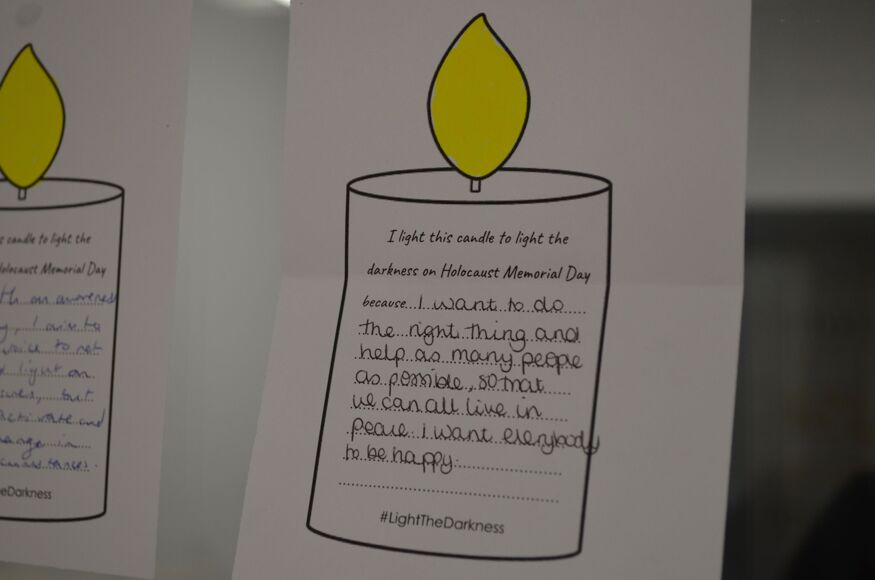 s candle to light the
Holocaust Memorial Day
th an awareness
y, I aim to
voice to not
light on
but
and
in
heDarkness
I light this candle to light the
darkness on Holocaust Memorial Day
because...I want to do
the right thing and
help as many people
as possible, so that
we can all live in
peace. I want everybody
to be happy.
#LightTheDarkness